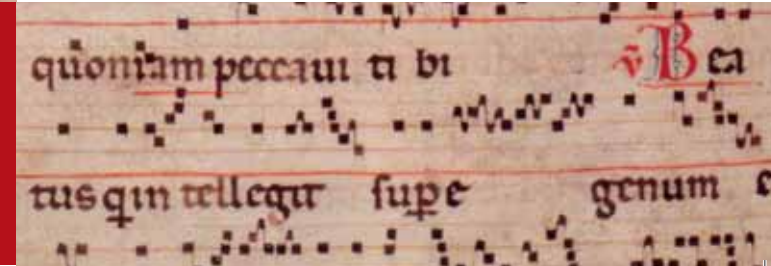 quoniam peccaui ti bi ṽ Bea
tus q̄ in tellegit sup̱e genum e